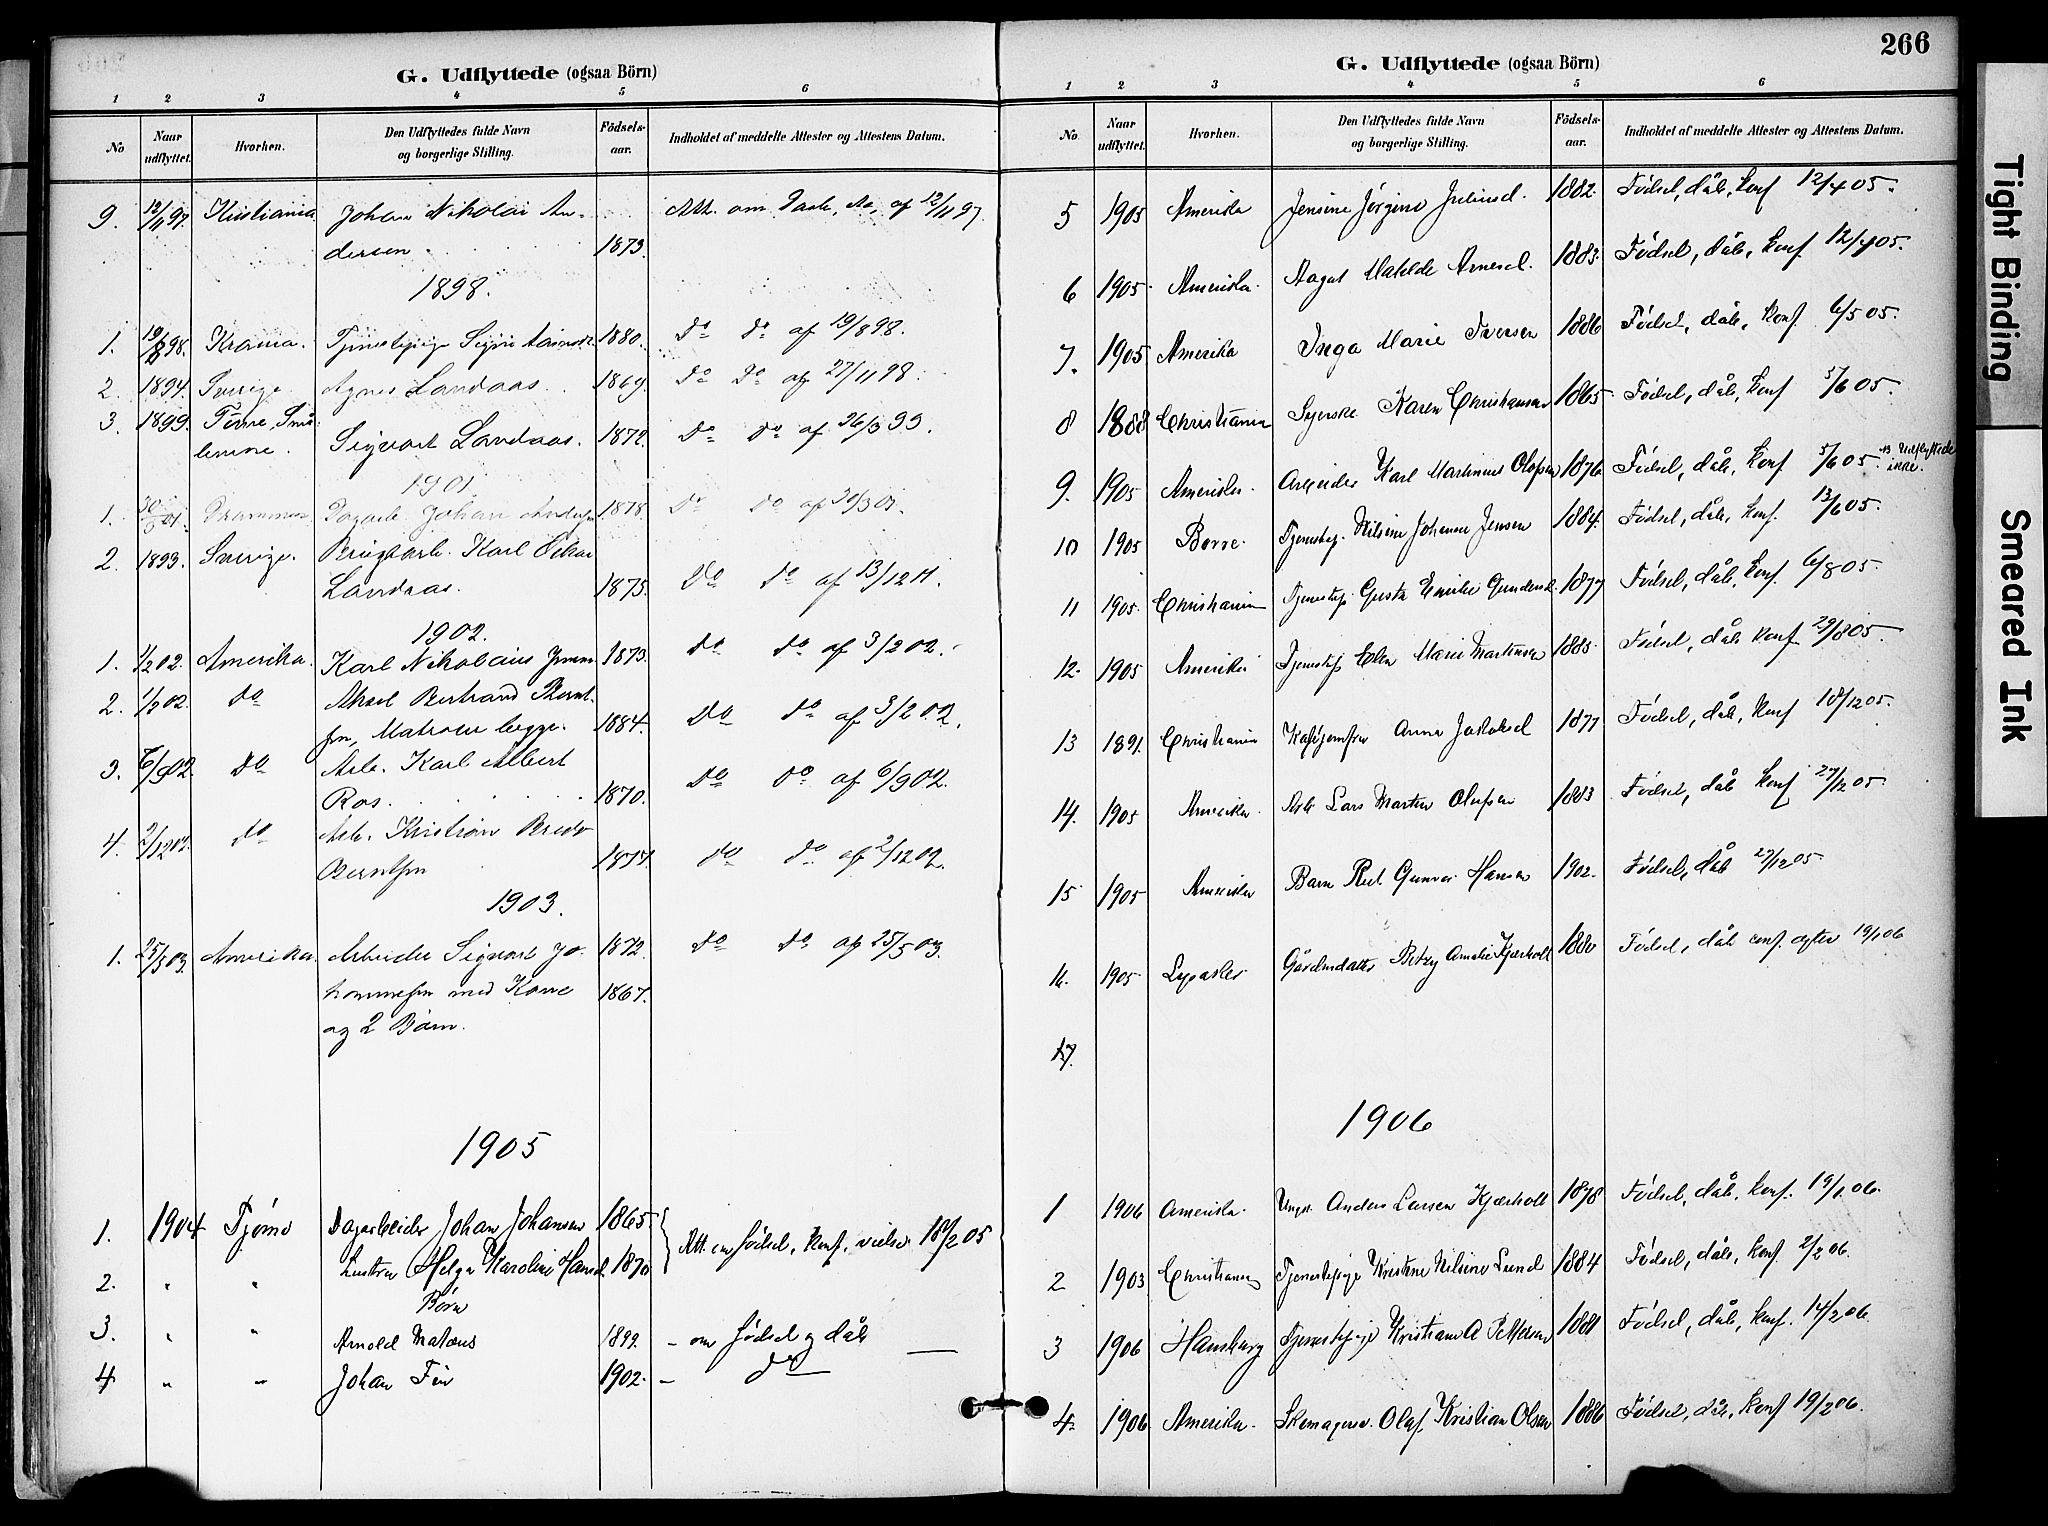 G. Udflyttede (ogsaa Börn)
1 2 3 4 5 6
No Naar udflyttet. Hvorhen. Den Udflyttedes fulde Navn og borgerlige Stilling. Födsels-aar. Indholdet af meddelte Attester og Attestens Datum.
9. 12/11 97. Kristiania Johan Nikolai An- Att. om Daab, do, af 12/11 97.
dersen. 1873.
1898.
1. 19/8 98. Krania. Tjenestepige Signe 1880. do do af 19/8 98.
2. 1894. Sverige. Agnes Landaas. 1869. do do af 27/11 98.
3. 1899. Smaa-
lenene. Sigvart Landaas. 1872. do do af 26/3 99.
1901
1. 30/3 01. Drammen. Dagarb. Johan Andersen 1878. do do af 30/3 01.
2. 1893. Sverige. Brugsarb. Karl Oskar
Landaas. 1875. do do af 13/12 11.
1902.
1. 1/2 02. Amerika. Karl Nikolaius 1873. do do af 3/2 02.
2. 1/2 02. do Aksel Bertrand Bernt-
sen, Matroser begge. 1884. do do af 3/2 02.
3. 6/9 02. do Arb. Karl Albert
Ros. 1870. do do af 6/9 02.
4. 2/12 02. do Arb. Kristian Brede
Berntsen 1877. do do af 2/12 02.
1903.
1. 25/5 03. Amerika. Arbeider Sigvart Jo- 1872. do do af 25/5 03.
hannessen med Kone 1867.
og 2 Börn.
1905
1. 1904 Tjømø Dagarbeider Johan Johansen 1865 Att. om fødsel, konf, vielse 18/2 05
2. " " hustru Helga Karoline Hansd. 1870
Børn
3. " " Arnold Mataeus 1899. - om fødsel og dåb
4 " " Johan Fin 1902. - do
266
G. Udflyttede (ogsaa Börn)
1 2 3 4 5 6
No. Naar udflyttet. Hvorhen. Den Udflyttedes fulde Navn og borgerlige Stilling. Födsels-aar. Indholdet af meddelte Attester og Attestens Datum.
5 1905 Amerika Jensine Jørgine Juliusd. 1882. Fødsel, dåb, konf 12/4 05.
6 1905. Amerika. Aagot Matilde Arnesd. 1883. Fødsel, dåb, konf. 12/4 05.
7. 1905 Amerika Inga Marie Iversen 1886 Fødsel, dåb, konf. 6/5 05.
8 1888 Christiania Syerske Karen Christiansen 1865 Fødsel, dåb, konf 5/6 05.
9. 1905 Amerika. Arbeider Karl Martinius Olafsen 1876 Fødsel, dåb, konf 5/6 05. Udflyttede ikke.
10 1905 Borre. Tjenestep. Nilsine Johanne Jensen 1884. Fødsel, dåb, konf. 13/6 05.
11 1905. Christiania Tjenestep. Gusta Emilie Gundersd. 1877. Fødsel, dåb, konf. 6/8 05.
12. 1905 Amerika Tjenestep. Marie Martinsen 1885. Fødsel, dåb konf 29/8 05.
13 1891. Christiania Anna Jakobsd 1877 Fødsel, dåb, konf 18/12 05.
14. 1905 Amerika Arb Lars Martin Olafsen 1883 Fødsel, dåb konf 27/12 05.
15 1905 Amerika Barn Gunvor Hansen 1902. Fødsel, dåb 27/12 05
16. 1905 Gårdmdatter Betzy Amalie Kjærholt 1880 Fødsel, dåb conf. 19/1 06
17.
1906
1 1906 Amerika. Ungk. Anders Larsen Kjærholt 1878 Fødsel, dåb, konf. 19/1 06.
2 1903 Christiania Tjenestepige Kristine Nilsine Lund 1884 Fødsel, dåb, konf. 2/2 06.
3 1906 Hamburg Tjenestepige Kristiane A Pettersen 1881 Fødsel, dåb, konf. 14/2 06.
4. 1906 Amerika. Skomagersv. Olaf Kristian Olsen 1886 Fødsel, dåb, konf 19/2 06.
Tight Binding
Smeared Ink